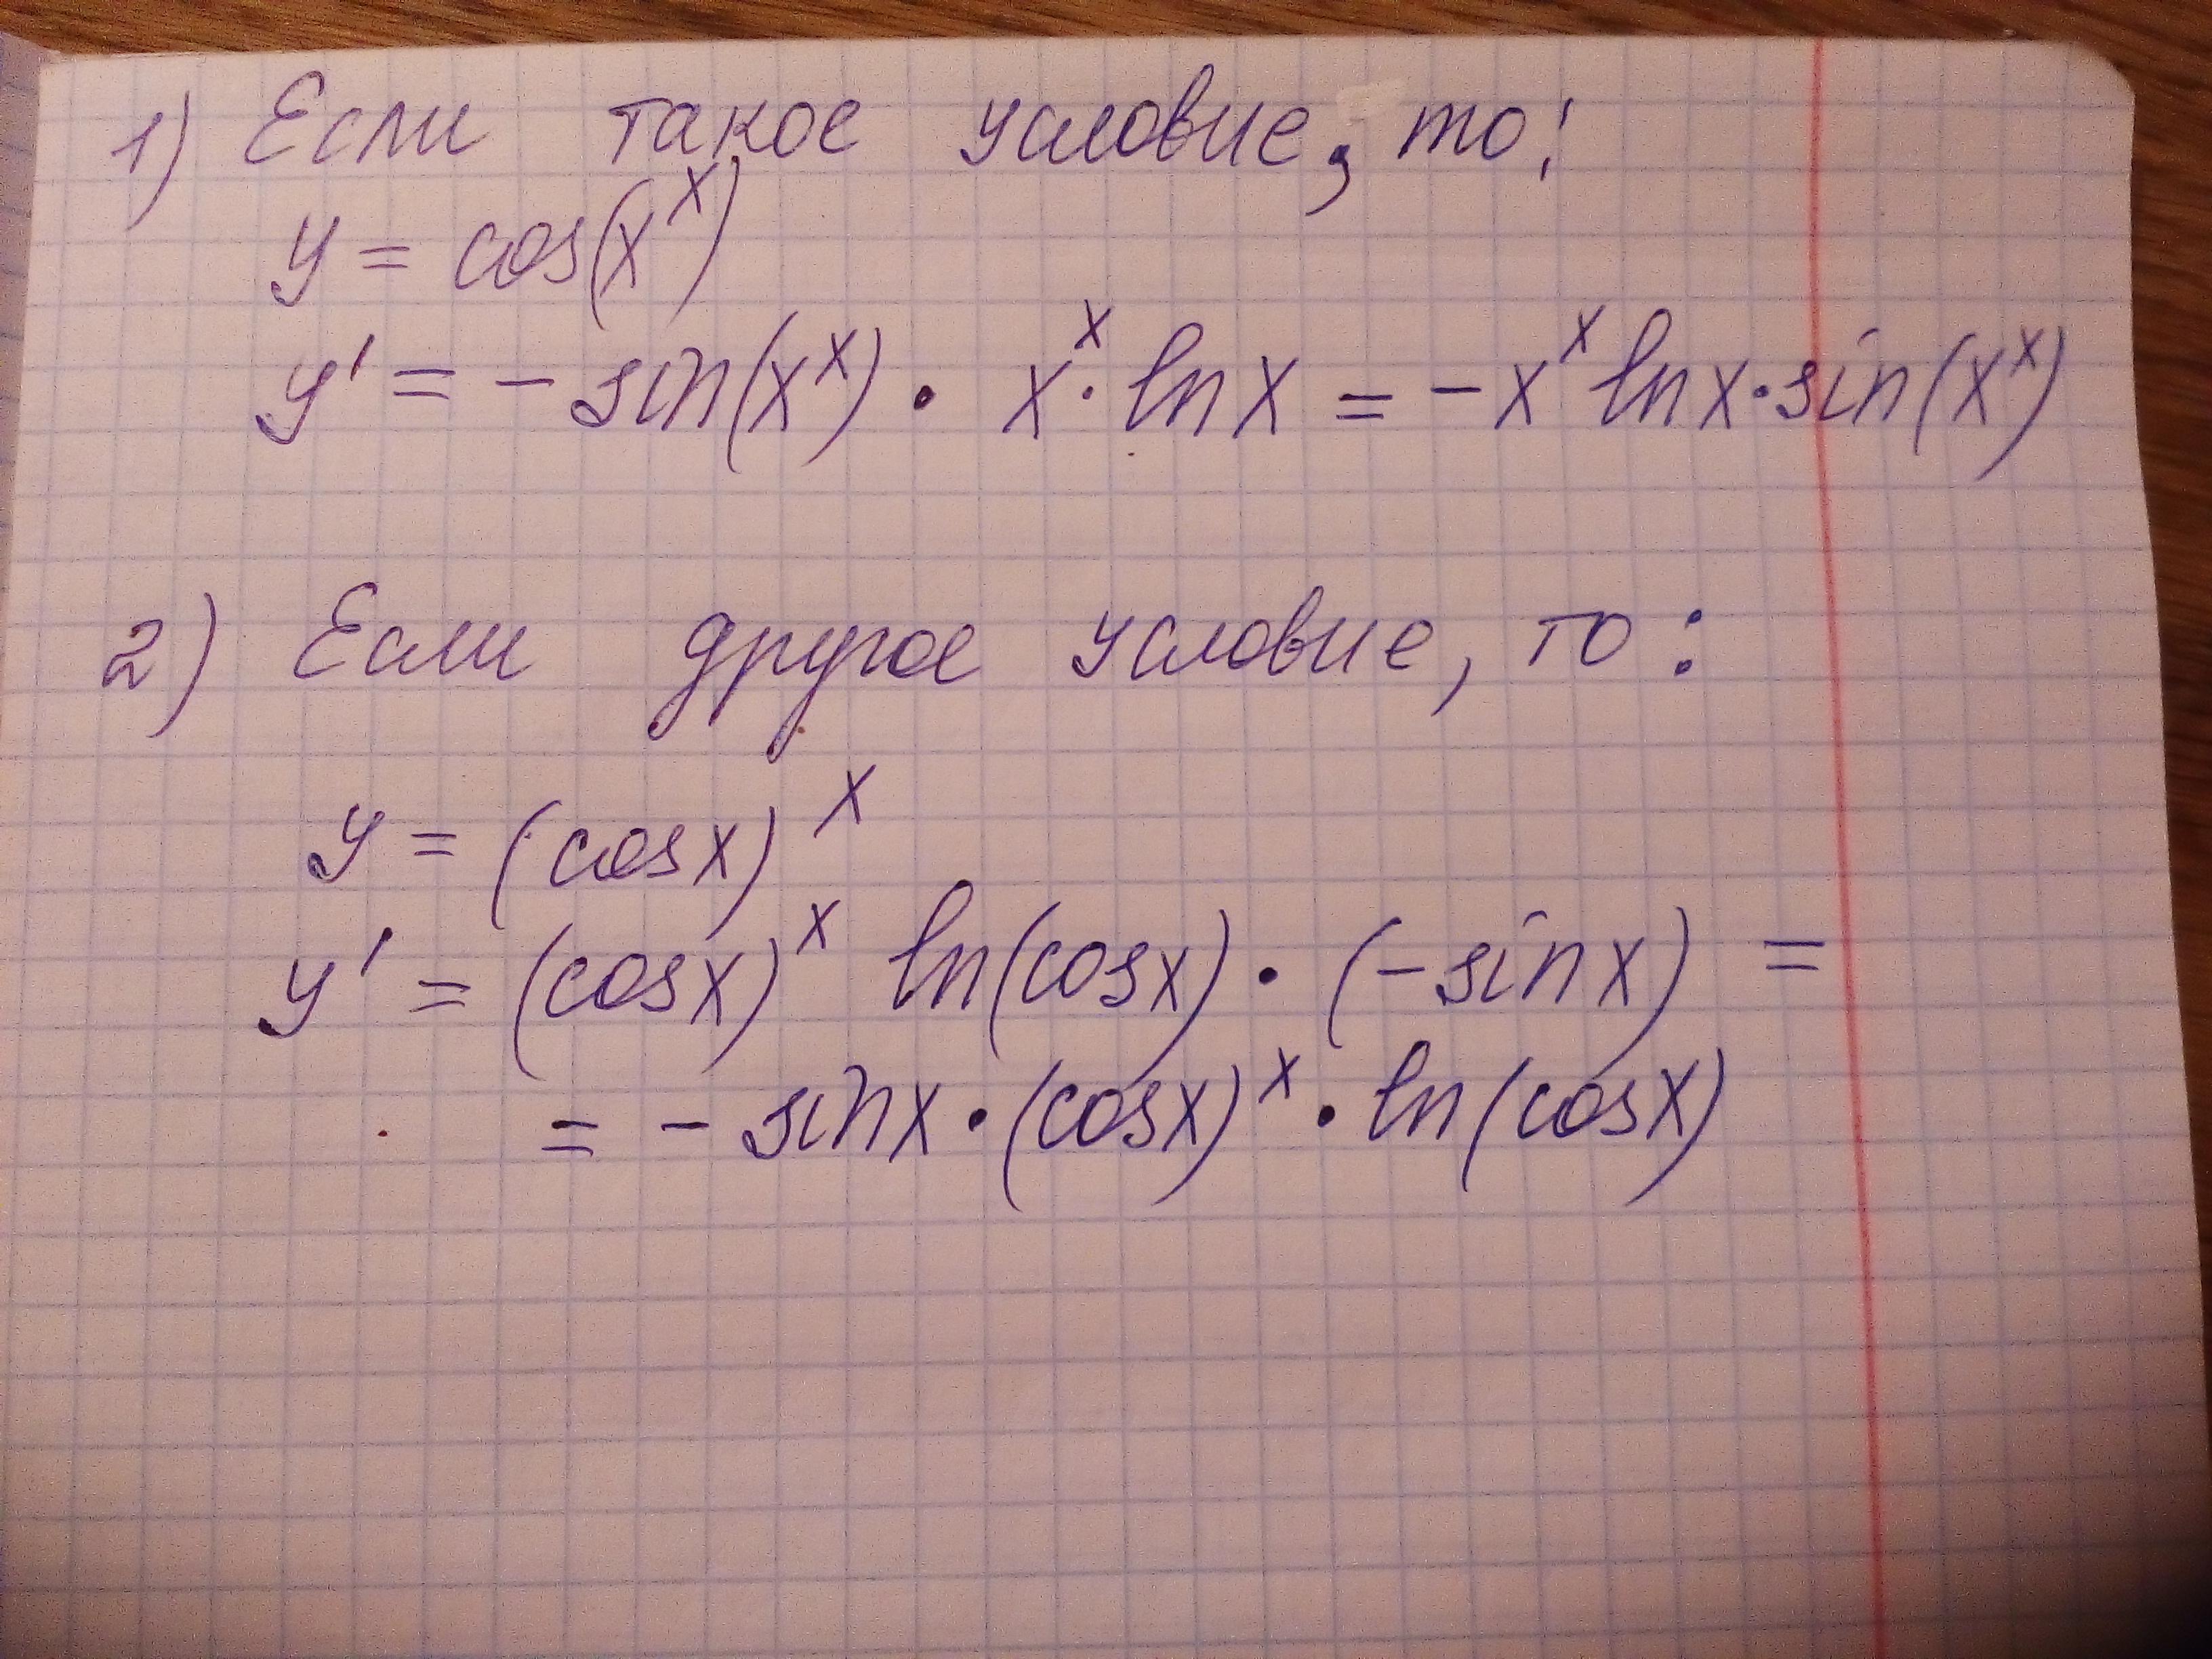 1) Если такое условие, то:
y = cos(x^x)
y' = - sin(x^x) · x^x · ln x = - x^x ln x · sin(x^x)
2) Если другое условие, то:
y = (cos x)^x
y' = (cos x)^x ln(cos x) · (- sin x) =
= - sin x · (cos x)^x · ln(cos x)